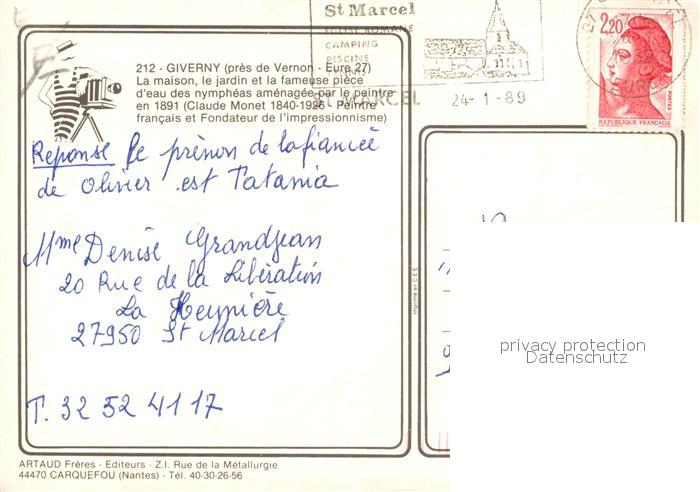 St Marcel
EGLISE ROMANE
CAMPING
PISCINE
ST MARCEL
24-1-89
2,20
POSTES
REPUBLIQUE FRANÇAISE
212 - GIVERNY (près de Vernon - Eure 27)
La maison, le jardin et la fameuse pièce
d'eau des nymphéas aménagée par le peintre
en 1891 (Claude Monet 1840-1926 - Peintre
français et Fondateur de l'impressionnisme)
Reponse Le prénom de la fiancée
de Olivier est Tatania
Mme Denise Grandjean
20 Rue de la Libération
La Heunière
27950 St Marcel
T. 32 52 41 17
Imprimé en C.E.E.
privacy protection
Datenschutz
ARTAUD Frères - Editeurs - Z.I. Rue de la Métallurgie
44470 CARQUEFOU (Nantes) - Tél. 40-30-26-56